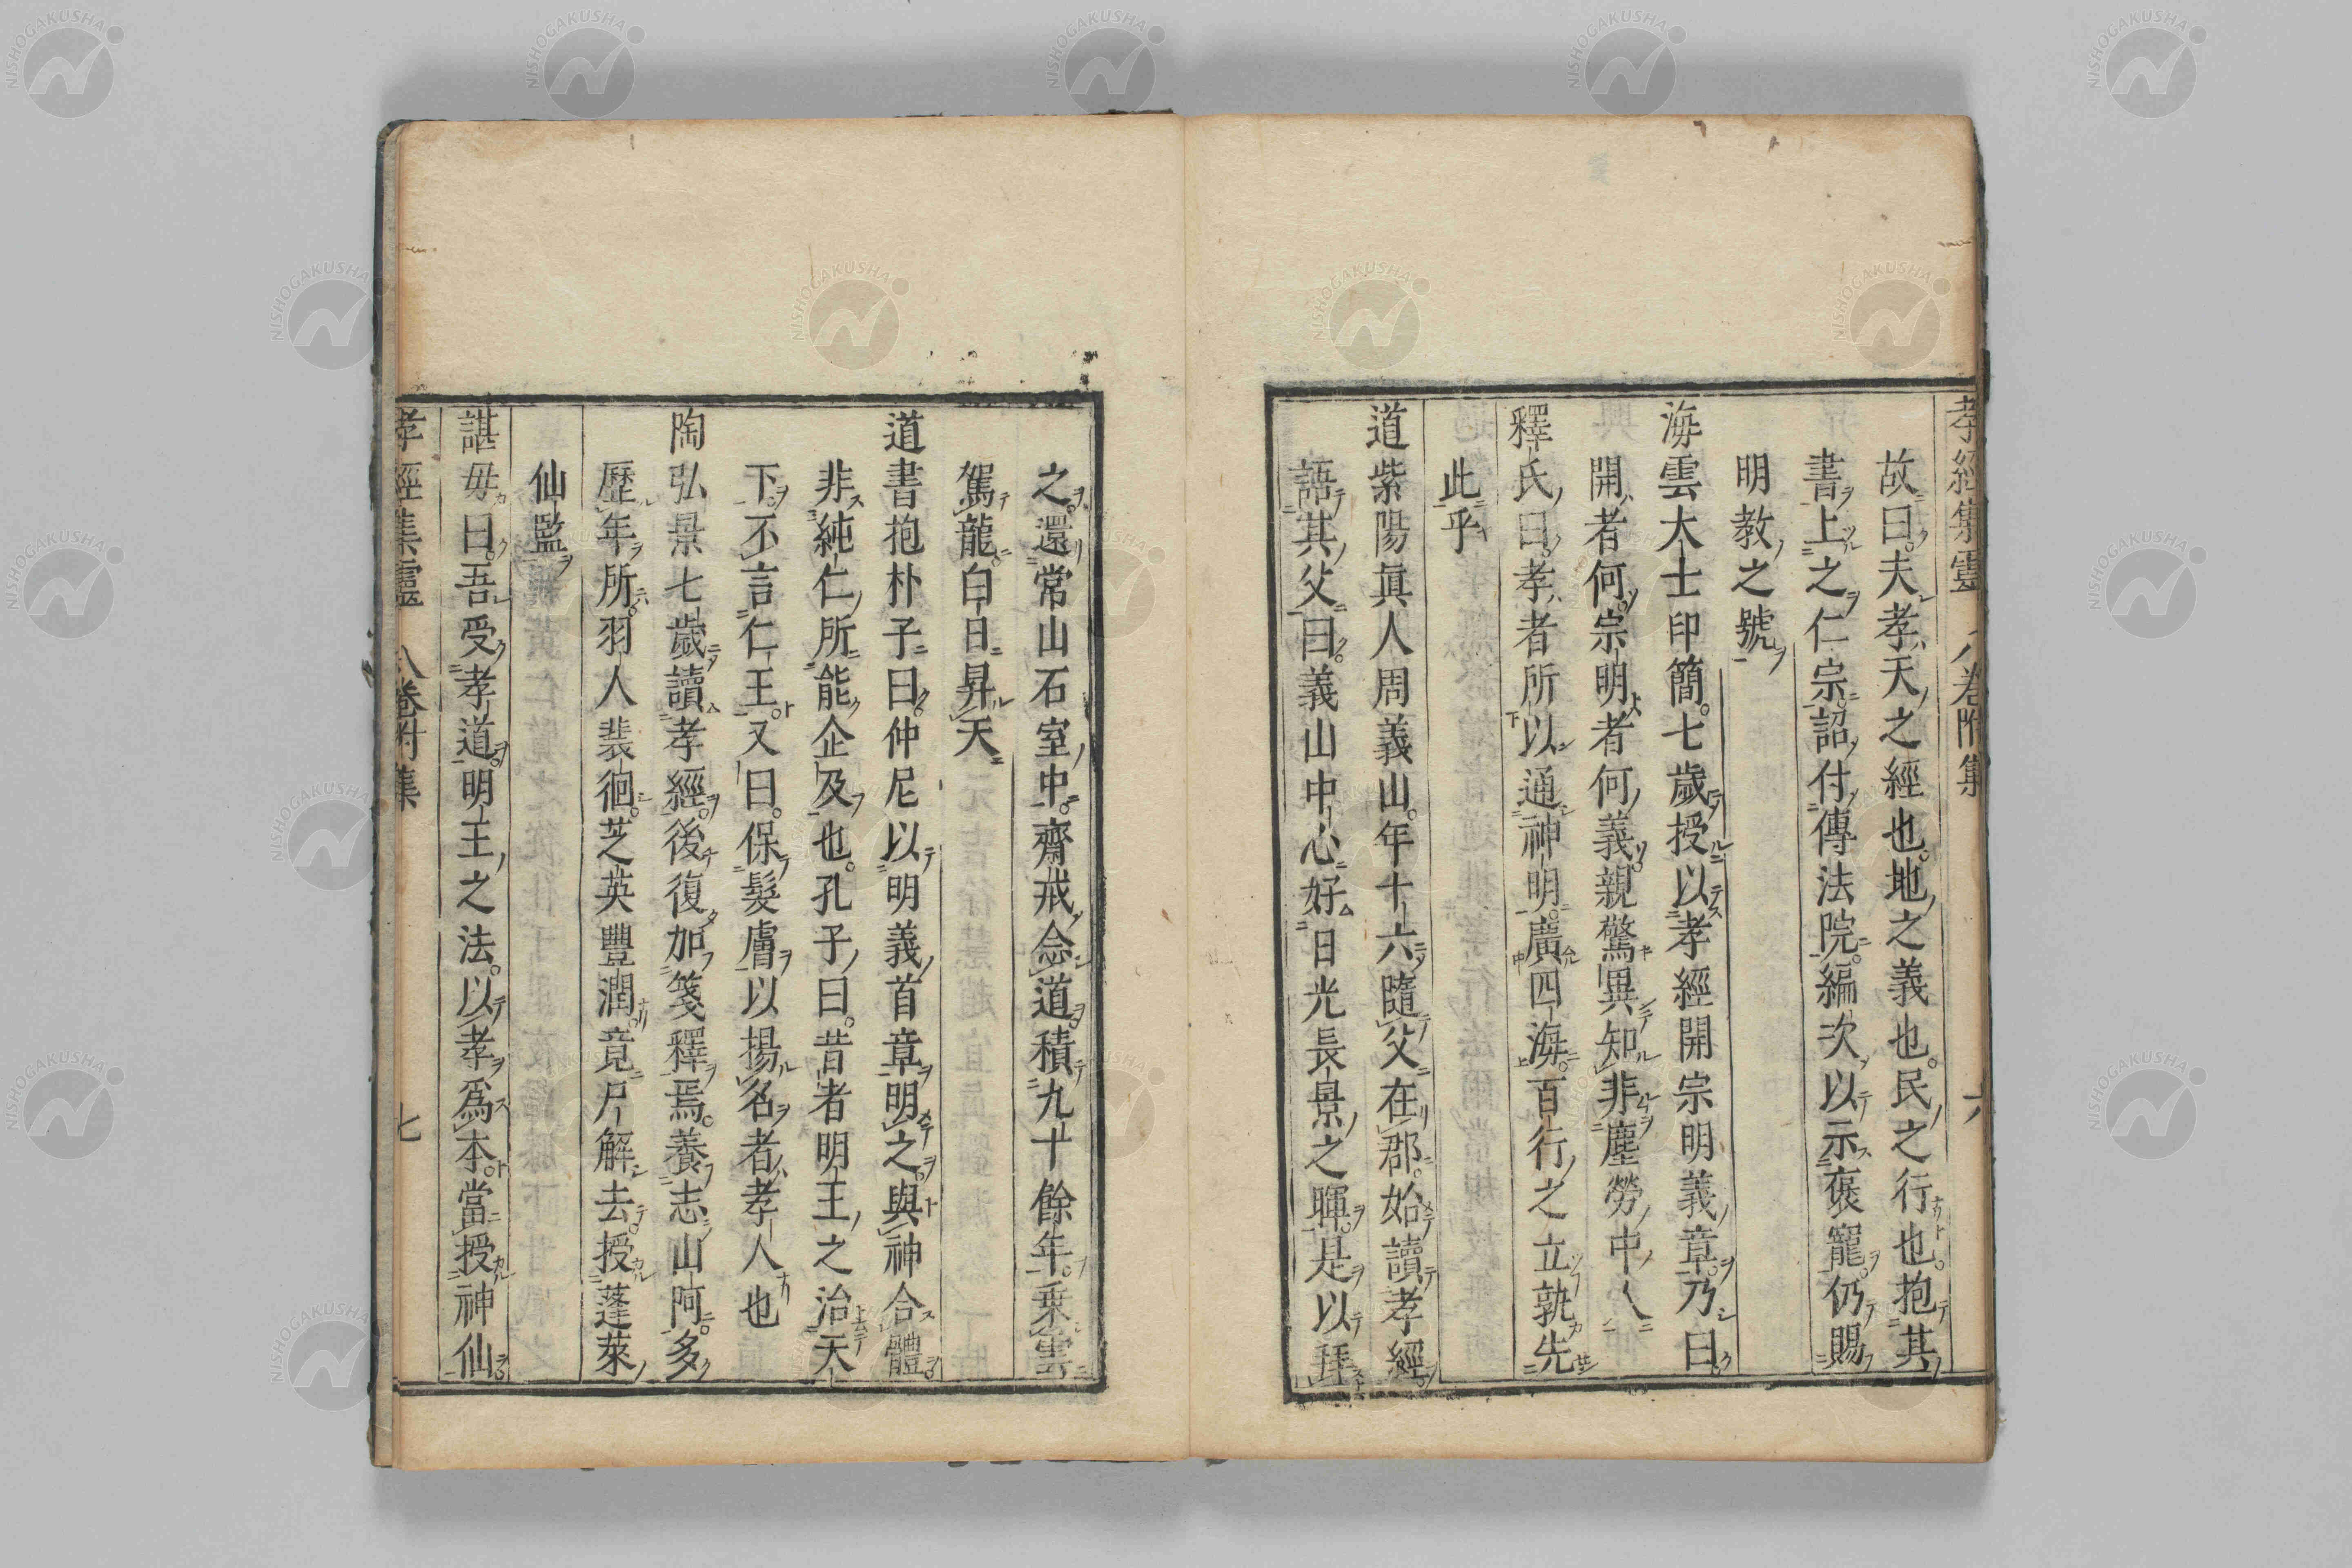 孝經集靈 八卷附集 六
故曰。夫孝天之經也。地之義也。民之行也。抱其
書上之仁宗。詔付傳法院。編次以示褒寵。仍賜
明教之號
海雲大士印簡。七歲授以孝經開宗明義章。乃曰
開者何。宗明者何義。親驚異知非塵勞中人
釋氏曰。孝者所以通神明。廣四海。百行之立孰先
此乎
道紫陽眞人周義山。年十六。隨父在郡。始讀孝經。
語其父曰。義山中心好日光長景之暉。是以拜
之。還常山石室中。齋戒念道。積九十餘年。乗雲
駕龍。白日昇天
道書抱朴子曰。仲尼以明義首章明之。與神合體。
非純仁所能企及也。孔子曰。昔者明王之治天
下。不言仁王。又曰。保髮膚以揚名者。孝人也
陶弘景七歲讀孝經。後復加箋釋焉。養志山阿。多
歷年所。羽人裴徊。芝英豐潤。竟尸解去。授蓬萊
仙監
諶母曰。吾受孝道明王之法。以孝爲本。當授神仙。
孝經集靈 八卷附集 七
NISHOGAKUSHA